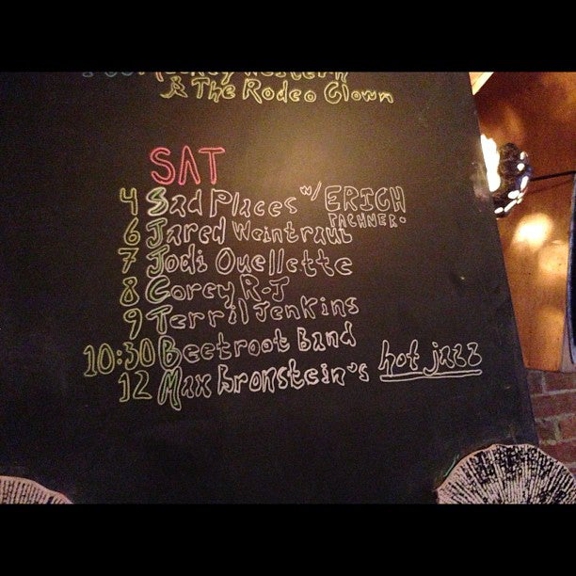 & The Rodeo Clown
SAT
4 Sad Places w/ ERICH PACHNER.
6 Jared Waintraub
7 Jodi Ouellette
8 Corey R-J
9 Terril Jenkins
10:30 Beetroot band
12 Max bronstein's hot jazz